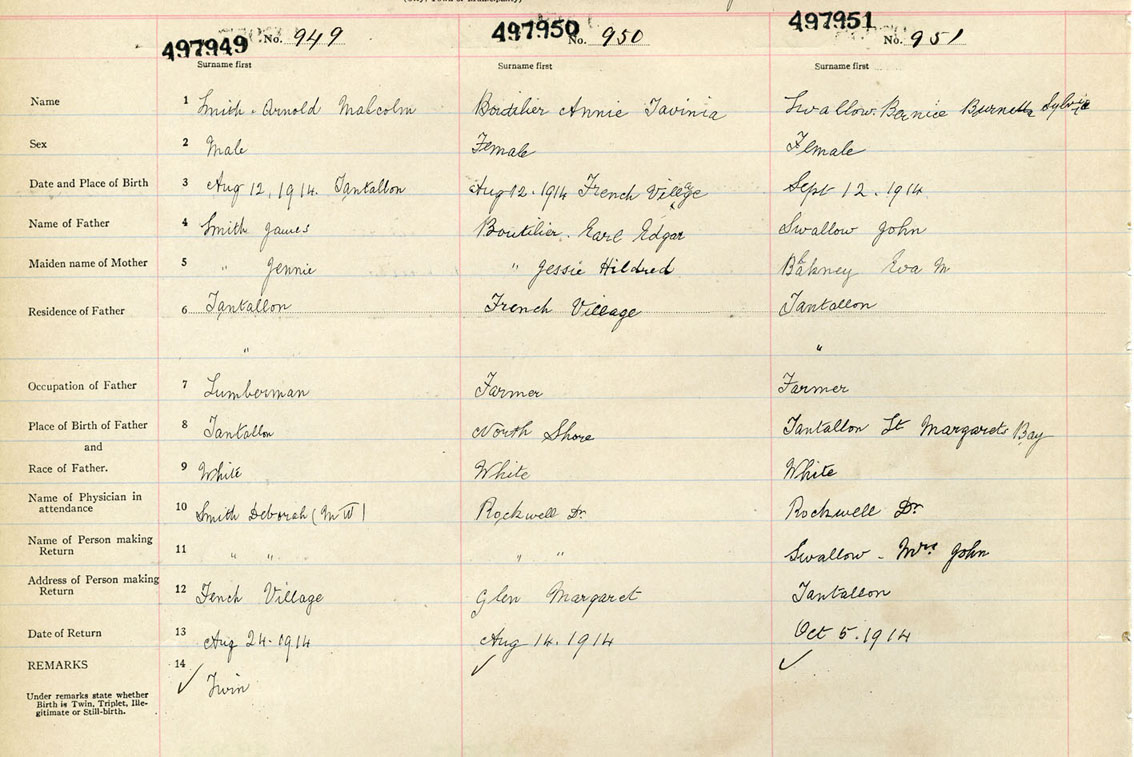 497949 No. 949 497950 No. 950 497951 No. 951
Surname first Surname first Surname first
Name 1 Smith Arnold Malcolm Boutilier Annie Tavinia Swallow Bernice Burnetta Sylvie
Sex 2 Male Female Female
Date and Place of Birth 3 Aug 12, 1914. Tantallon Aug 12. 1914 French Village Sept 12. 1914
Name of Father 4 Smith James Boutilier. Earl Edgar Swallow John
Maiden name of Mother 5 " Jennie " Jessie Hildred Blakney Eva M
Residence of Father 6 Tantallon French Village Tantallon
" "
Occupation of Father 7 Lumberman Farmer Farmer
Place of Birth of Father 8 Tantallon North Shore Tantallon St Margarets Bay
and
Race of Father. 9 White White White
Name of Physician in
attendance 10 Smith Deborah (M W) Rockwell Dr. Rockwell Dr.
Name of Person making
Return 11 " " " " Swallow - Mrs John
Address of Person making
Return 12 Fench Village Glen Margaret Tantallon
Date of Return 13 Aug 24. 1914 Aug 14. 1914 Oct 5. 1914
REMARKS 14 ✓ Twin ✓ ✓
Under remarks state whether
Birth is Twin, Triplet, Ille-
gitimate or Still-birth.